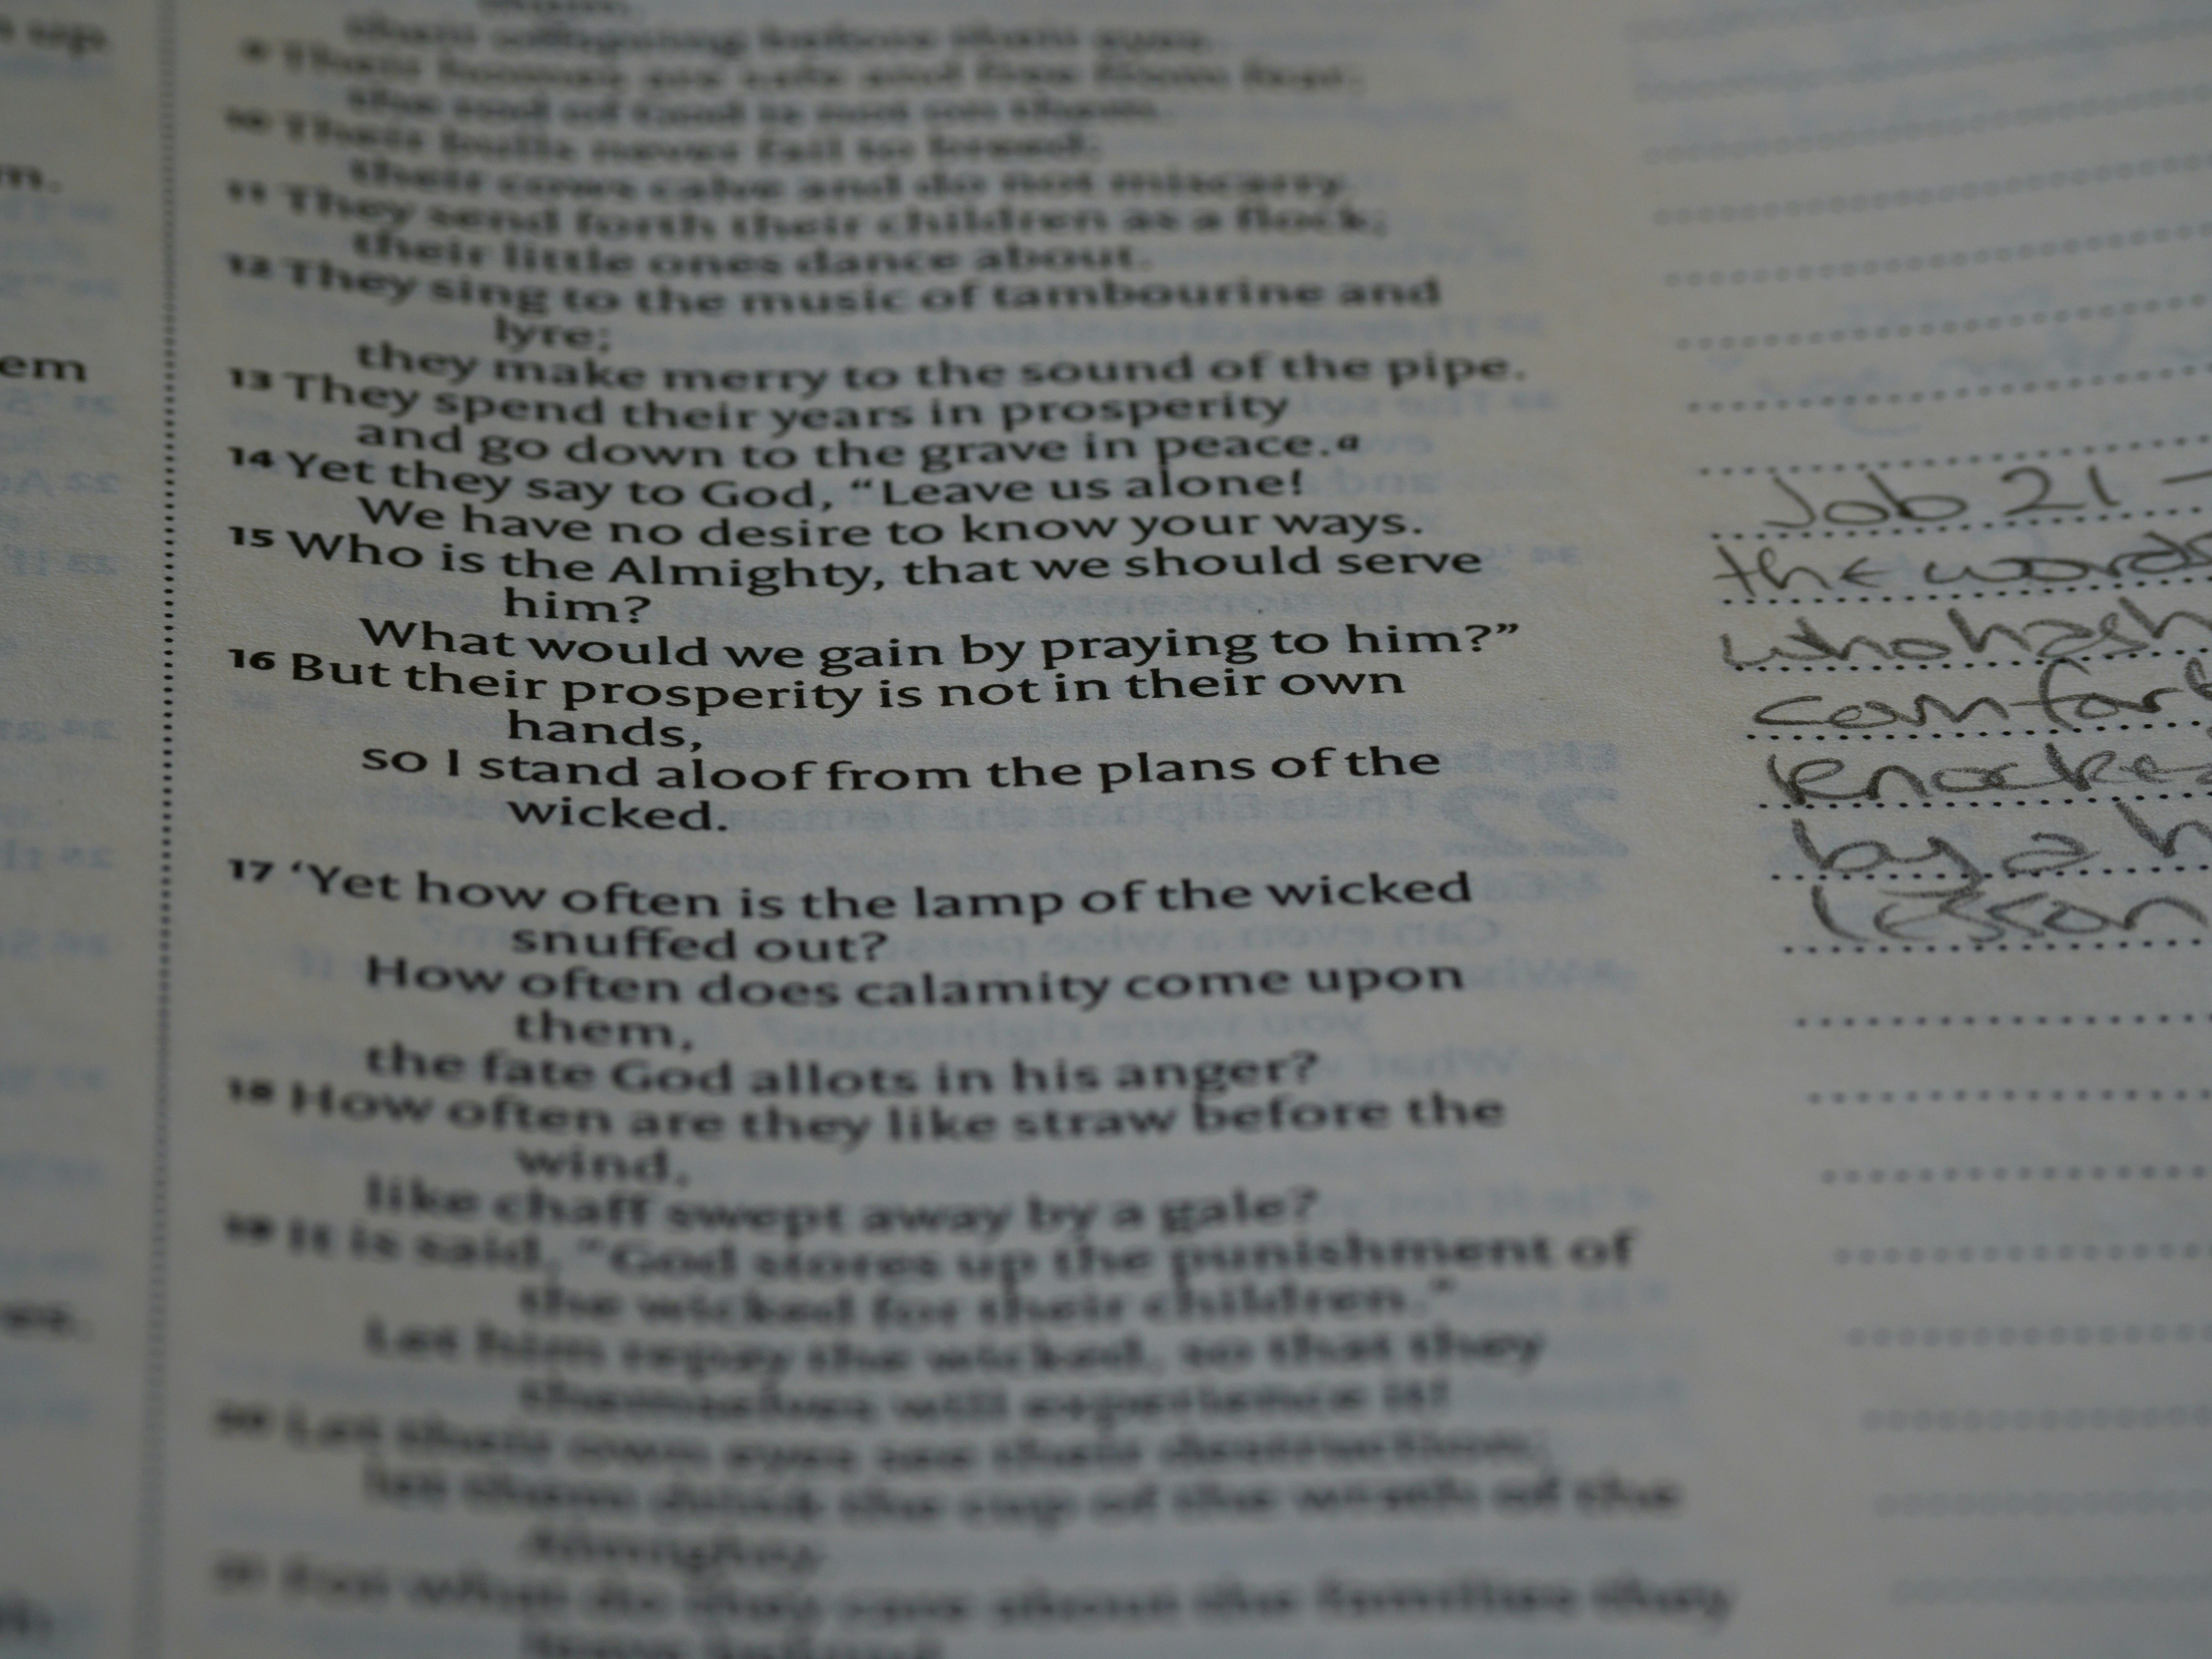 up
their offspring before their eyes.
9 Their homes are safe and free from fear;
the rod of God is not on them.
10 Their bulls never fail to breed;
their cows calve and do not miscarry.
11 They send forth their children as a flock;
their little ones dance about.
12 They sing to the music of tambourine and
lyre;
they make merry to the sound of the pipe.
13 They spend their years in prosperity
and go down to the grave in peace.a
14 Yet they say to God, “Leave us alone!
We have no desire to know your ways.
15 Who is the Almighty, that we should serve
him?
What would we gain by praying to him?”
16 But their prosperity is not in their own
hands,
so I stand aloof from the plans of the
wicked.
17 ‘Yet how often is the lamp of the wicked
snuffed out?
How often does calamity come upon
them,
the fate God allots in his anger?
18 How often are they like straw before the
wind,
like chaff swept away by a gale?
19 It is said, “God stores up the punishment of
the wicked for their children.”
Let him repay the wicked, so that they
themselves will experience it!
20 Let their own eyes see their destruction;
let them drink the cup of the wrath of the
Almighty.
21 For what do they care about the families they
leave behind
Job 21 -
the words
who has
comfort
knocke
by a h
lesson